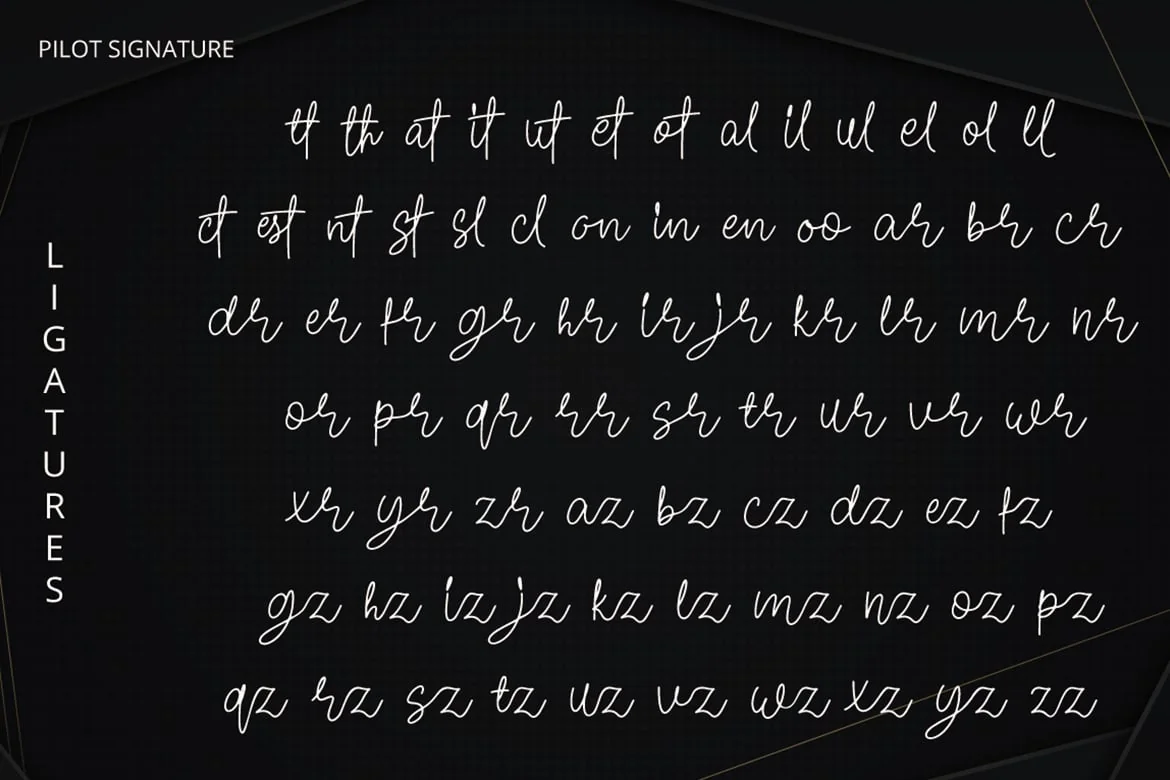 PILOT SIGNATURE
LIGATURES
tt th at it ut et ot al il ul el ol ll
ct est nt st sl cl on in en oo ar br cr
dr er fr gr hr ir jr kr lr mr nr
or pr qr rr sr tr ur vr wr
xr yr zr az bz cz dz ez fz
gz hz iz jz kz lz mz nz oz pz
qz rz sz tz uz vz wz xz yz zz